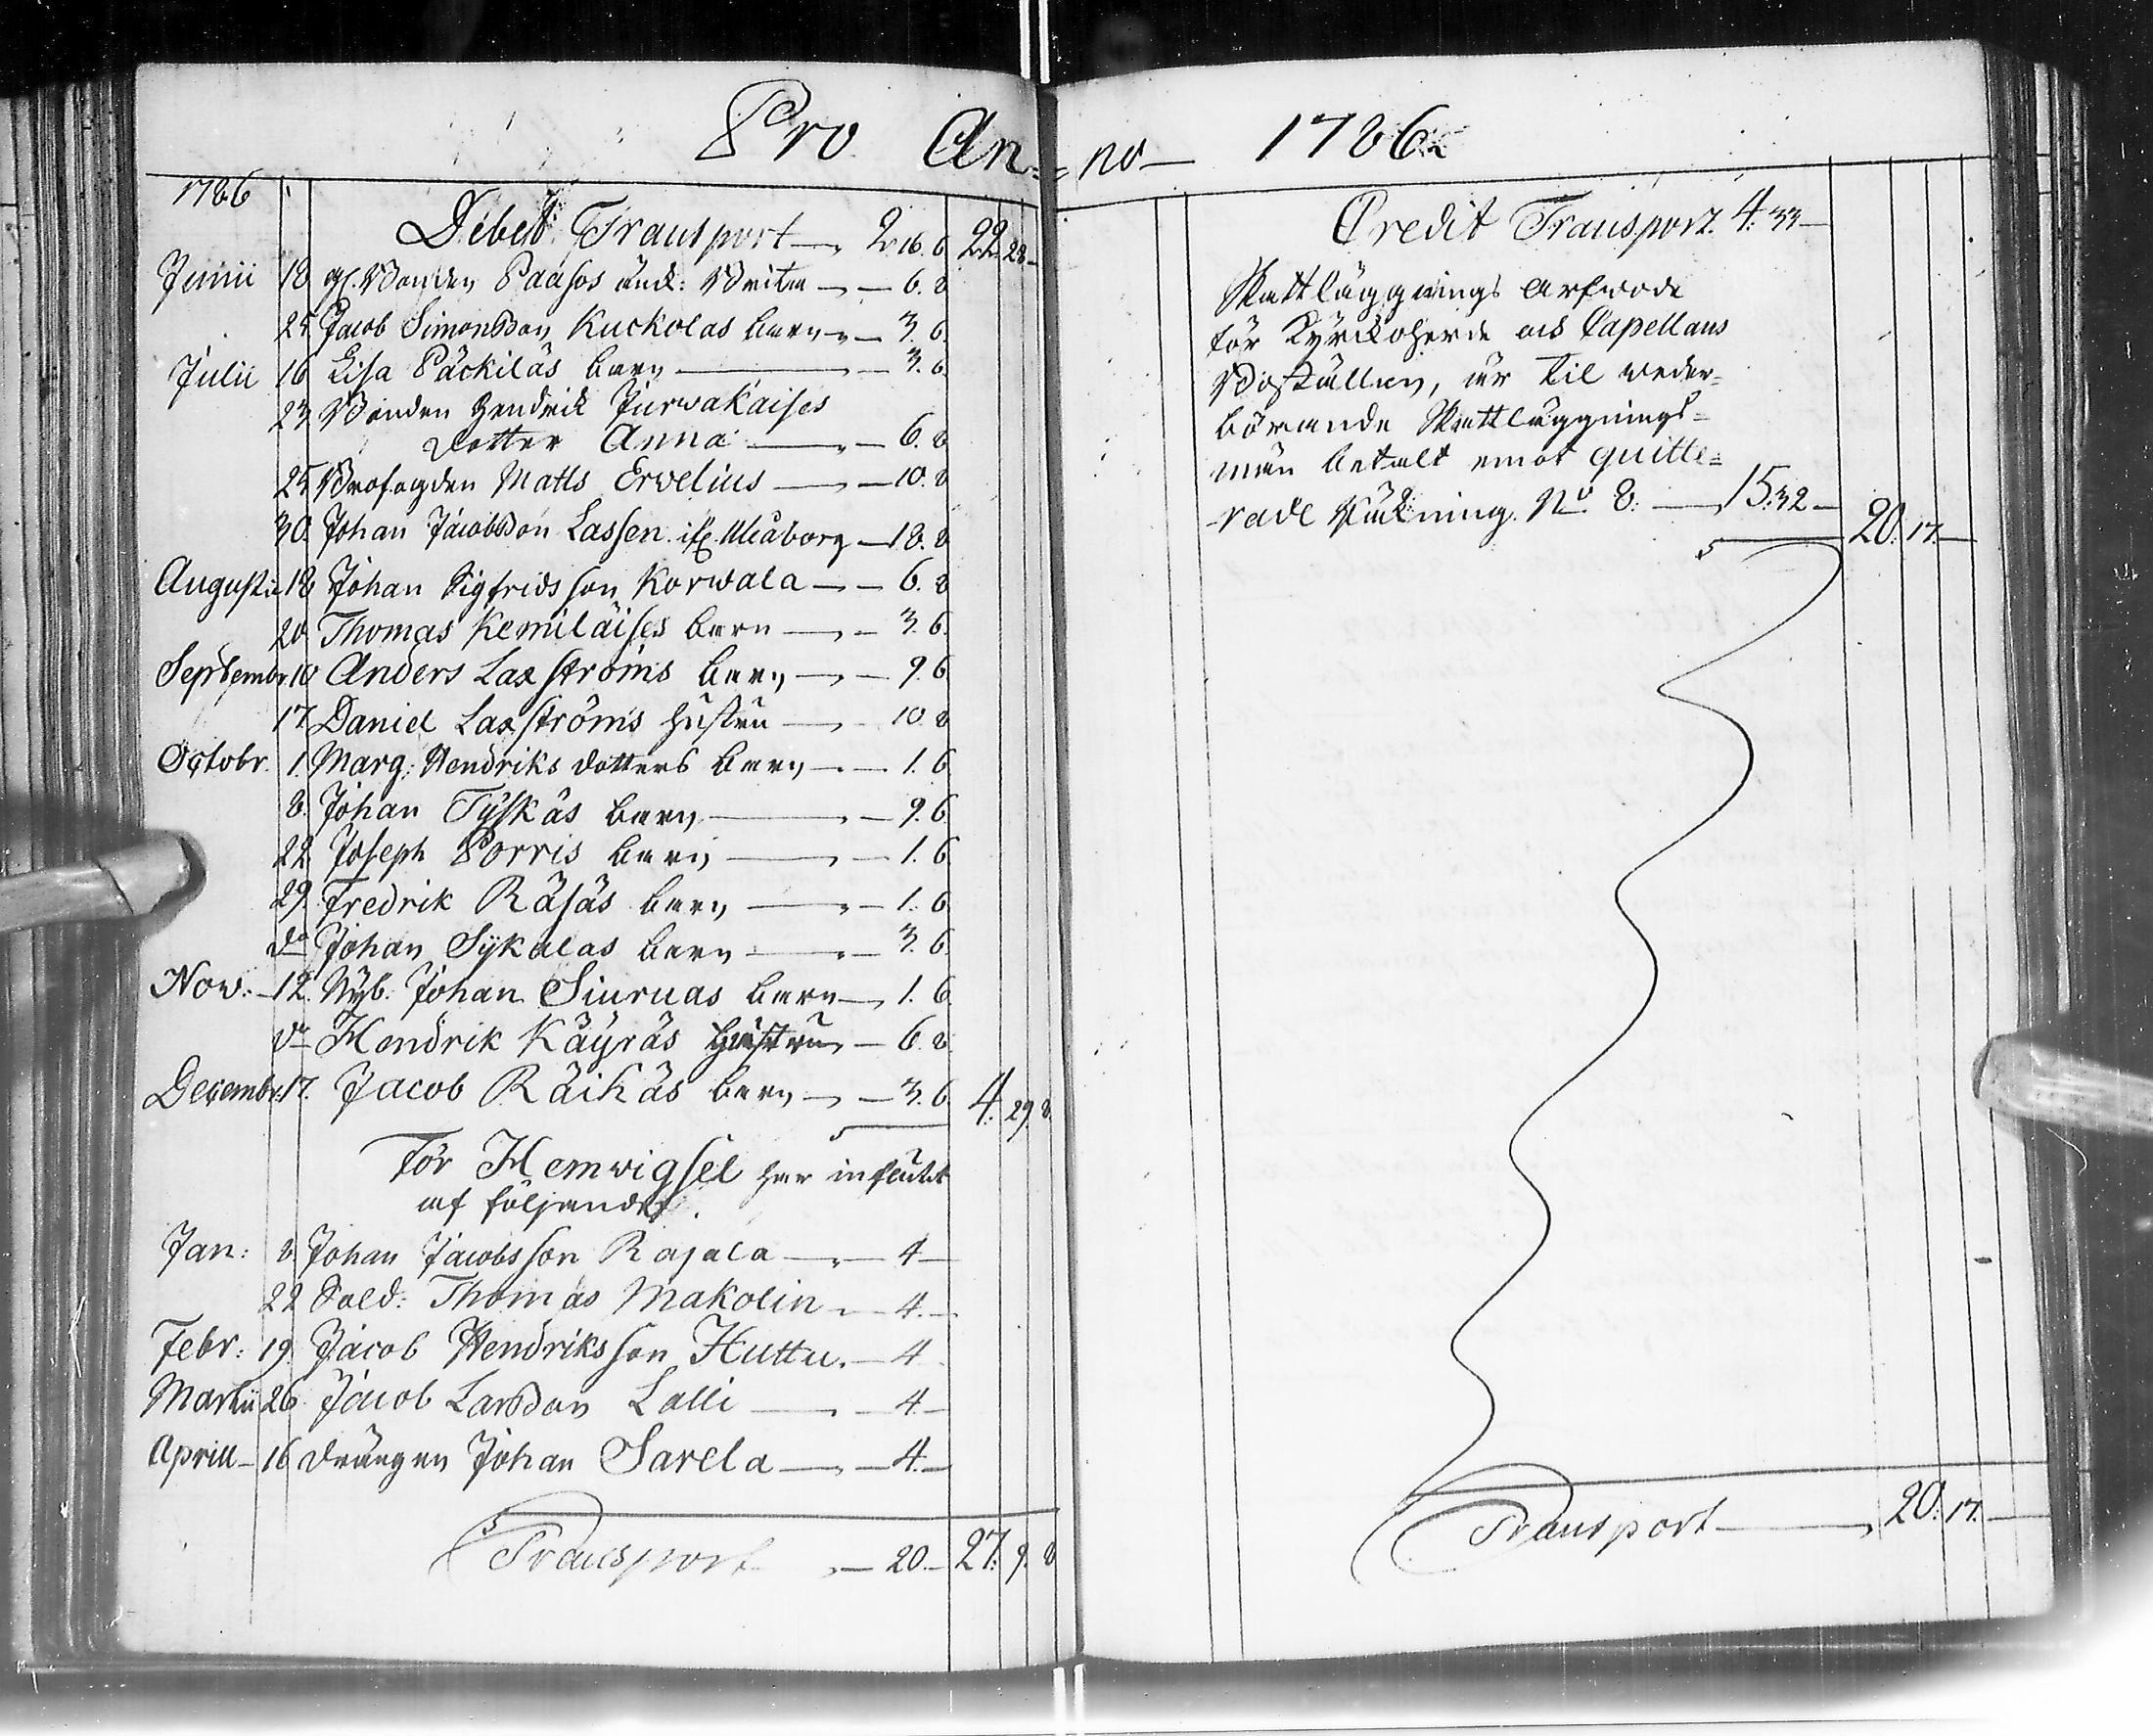 Pro An=
1786
Debet Transport 2. 16. 6 22. 28
Junii 18 gl. Bonden Paasos änck: Brita 6. 8
25 Jacob Simonsson Kuckolas barn 3. 6
Julii 16 Lisa Päckiläs barn 3. 6.
23 Bonden Hendrik Jurwakaises
dotter Anna 6. 8
25 Brofogden Matts Ervelius 10. 8
30. Johan Jacobsson Lassen Uleåborg 18. 8
Augusti 18 Johan Sigfridsson Korwala 6. 8
20 Thomas Kemiläises barn 3. 6.
Septembr. 10 Anders Laxströms barn 9. 6
17 Daniel Laxströms hustru 10. 8
Octobr. 1. Marg: Hendriks dotters barn 1. 6
8. Johan Tyskäs barn 9. 6.
22 Joseph Porris barn 1. 6
29 Fredrik Räsäs barn 1. 6
do Johan Sykalas barn 3. 6
Now: 12. Nyb: Johan Siuruas barn 1. 6.
do Hendrik Käyräs hustru 6. 8
Decembr: 17. Jacob Räihäs barn 3. 6 4. 29. 8
För Hemwigsel har influtit
af följande.
Jan: 8 Johan Jacobsson Rajala 4
22 Sold: Thomas Makolin 4.
Febr: 19 Jacob Hendriksson Huttu. 4
Martii 26 Jacob Larsson Lalli 4
Aprill 16 Drängen Johan Sarela 4
Transport 20. 27. 9. 8
=no 1786
Credit Transport. 4. 33
Skattläggnings arfwode
för Kyrckoherde och Capellans
Boställen, är til weder=
börande Skattläggnings=
män betalt emot quitte=
rade Räckning No 8. 15. 32 20. 17.
Transport 20. 17.